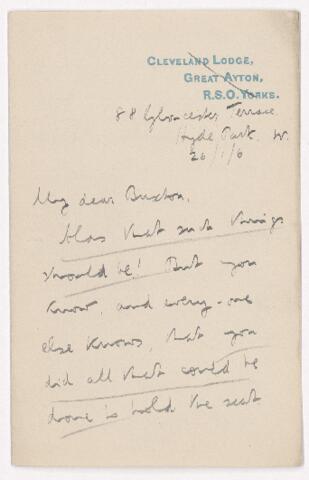 CLEVELAND LODGE,
GREAT AYTON,
R.S.O. YORKS.
88 Gloucester Terrace
Hyde Park. W.
26/1/6
My dear Buxton,
Alas that such things
should be! But you
know, and every-one
else knows, that you
did all that could be
done to hold the seat